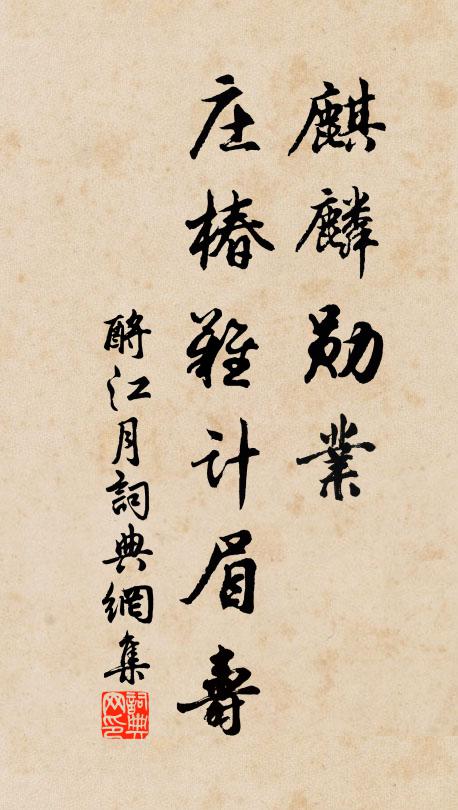 麒麟勋業
庄椿難计眉壽
酹江月詞典網集
詞典网印